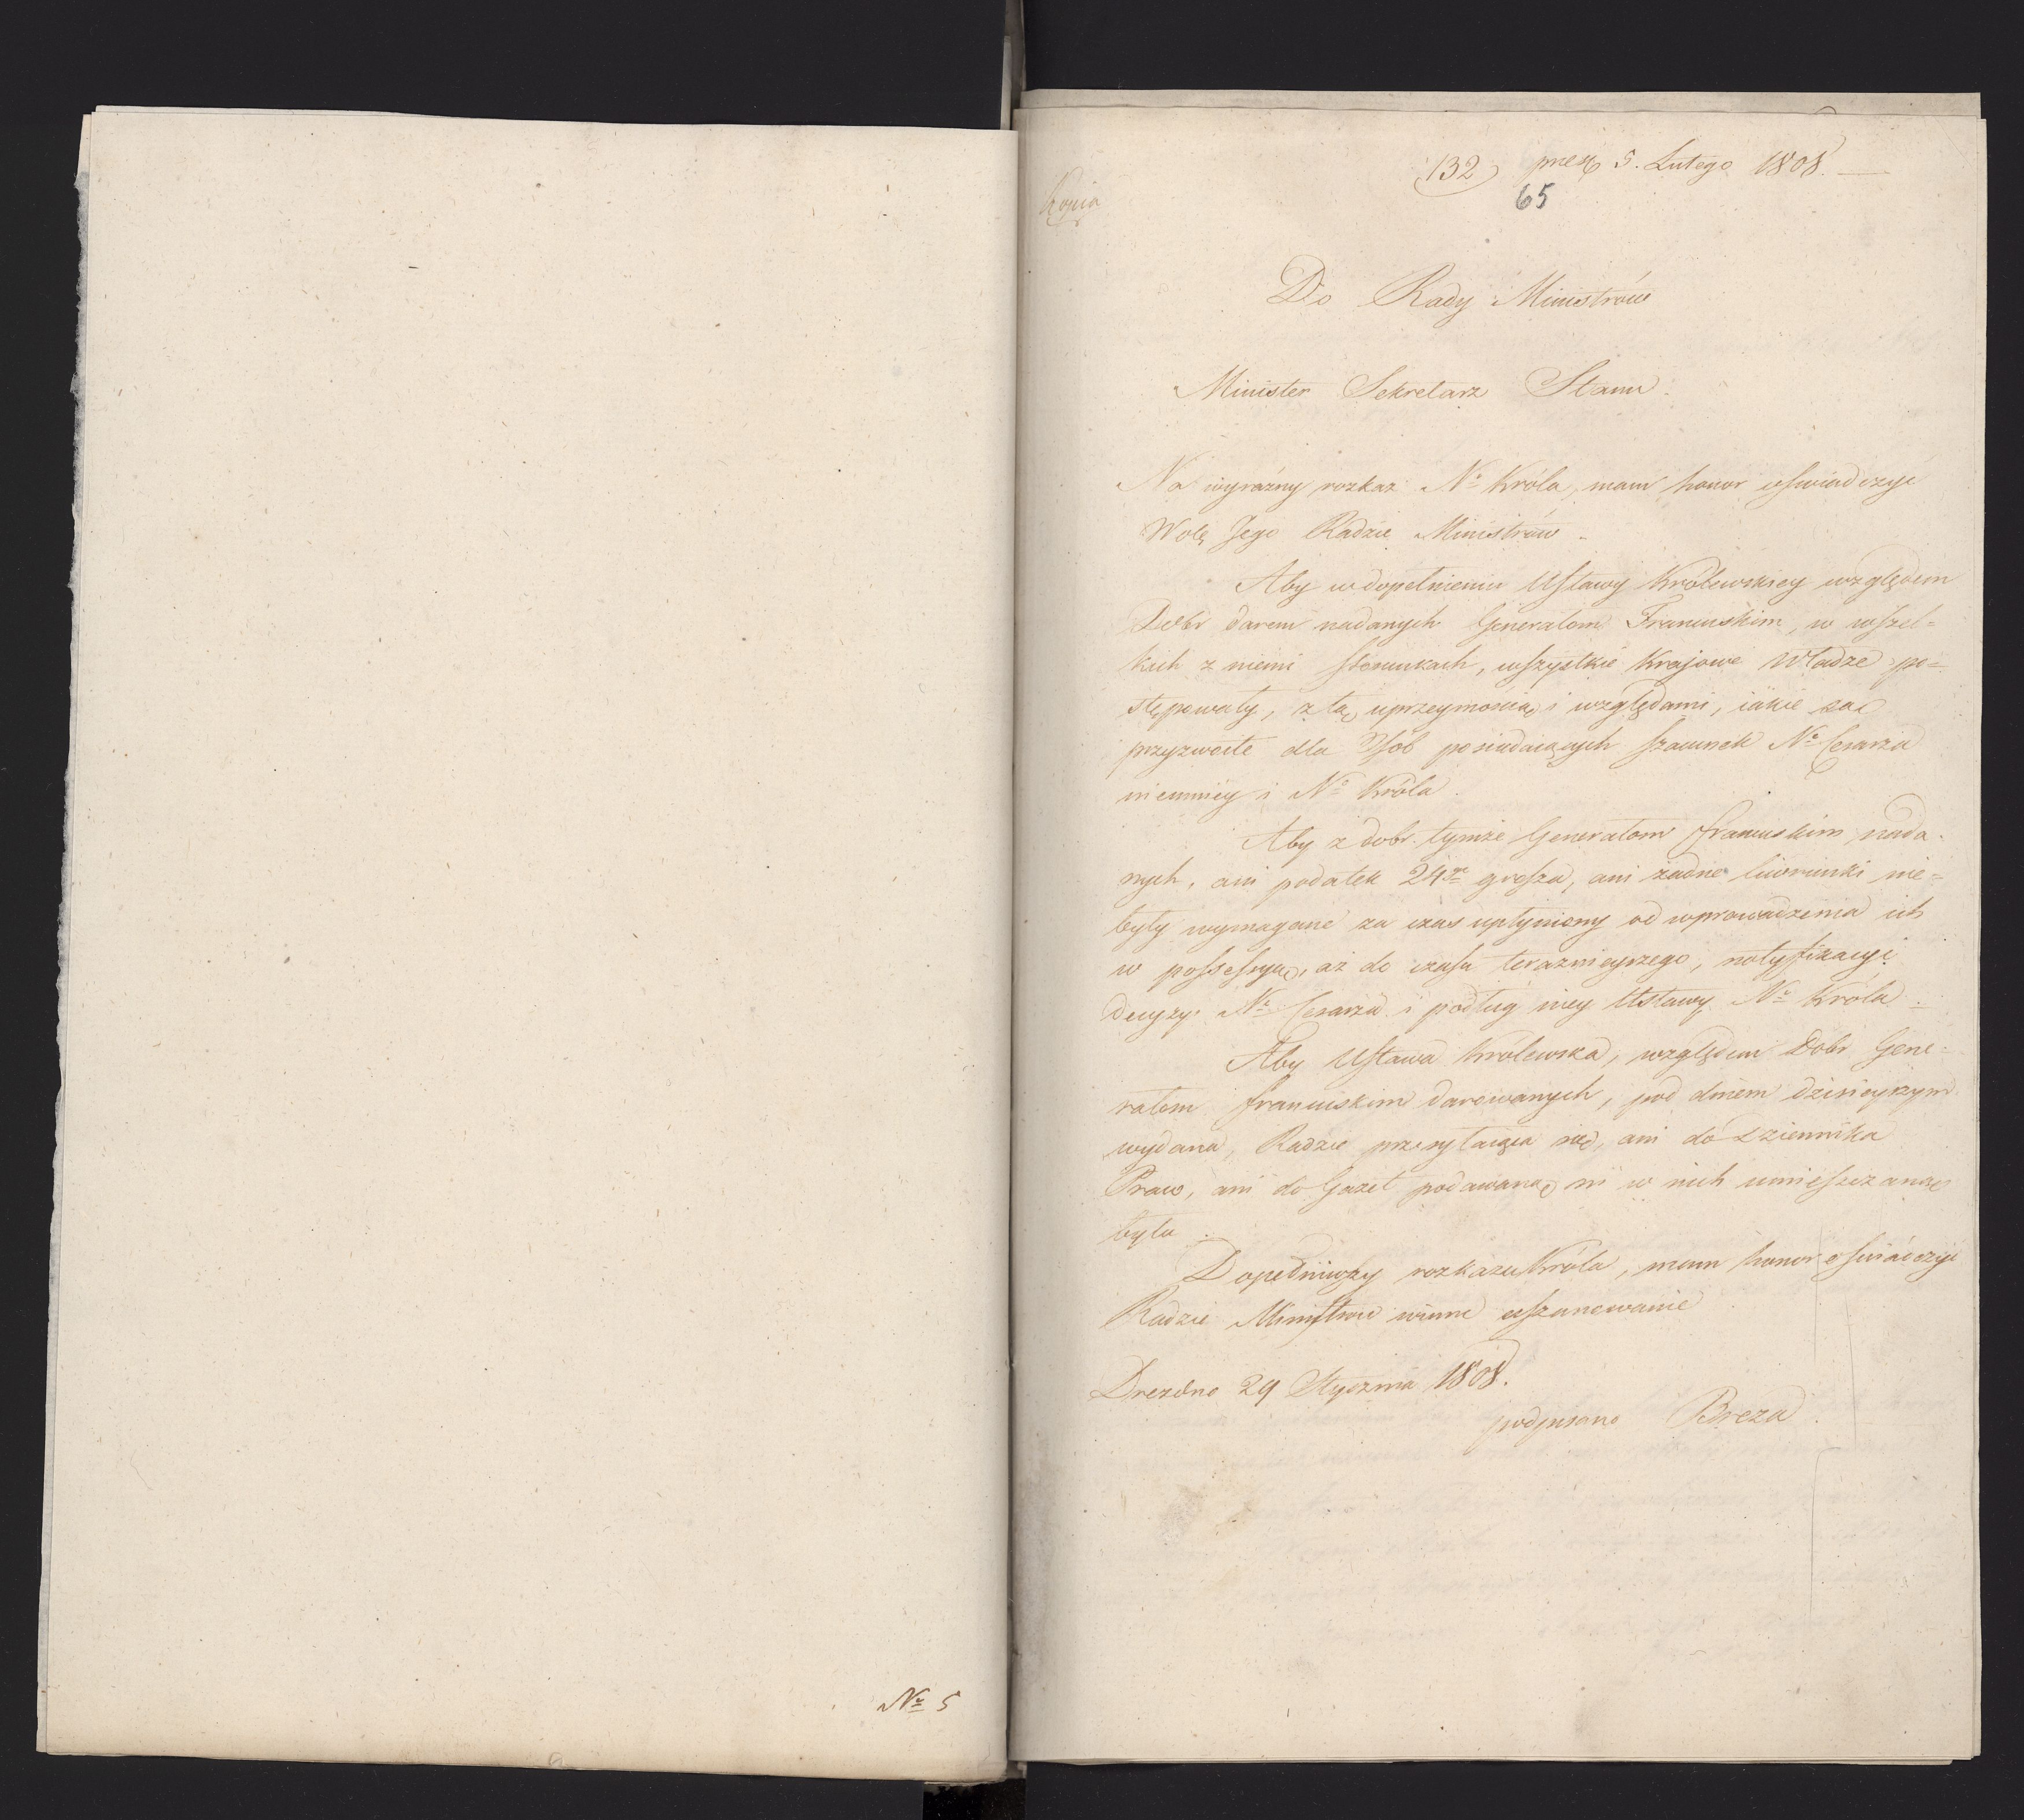 Nº 5
132) 5. Lutego 1808.
65
Kopia
Do Rady Ministrów
Minister Sekretarz Stanu.
Na wyraźny rozkaz Nº Króla, mam honor oświadczyć
Wolę Jego Radzie Ministrów.
Aby w dopełnieniu Ustawy Królewskiey względem
Dóbr darem nadanych Generałom Francuskim, w wszel=
kich z niemi stosunkach, wszystkie Krajowe Władze po=
stępowały, z tą uprzeymością i względami, iakie są
przyzwoite dla Osób posiadaiących szacunek Nº Cesarza
niemniey i Nº Króla.
Aby z dobr tymże Generałom francuskim nada=
nych, ani podatek 24go grosza, ani żadne liwrunki nie=
były wymagane za czas upłyniony od wprowadzenia ich
w possessyą, aż do czasu teraznieyszego, notyfikacyi
decyzyi Nº Cesarza i podług niey Ustawy Nº Króla.
Aby Ustawa Królewska, względem Dóbr Gene=
rałom francuskim darowanych, pod dniem dzisieyszym
wydana, Radzie przesyłaiąca się, ani do dziennika
Praw, ani do Gazet podawaną ni w nich umieszczaną
była.
Dopełniwszy rozkazu Króla, mam honor oświadczyć
Radzie Ministrow winne uszanowanie
Drezdno 29 Stycznia 1808.
podpisano Breza.